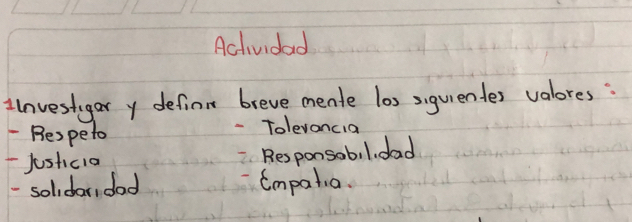 Actividad
1 Investigar y definir breve mente los siguientes valores:
- Respeto - Tolerancia
- Justicia - Responsabilidad
- solidaridad - Empatia.